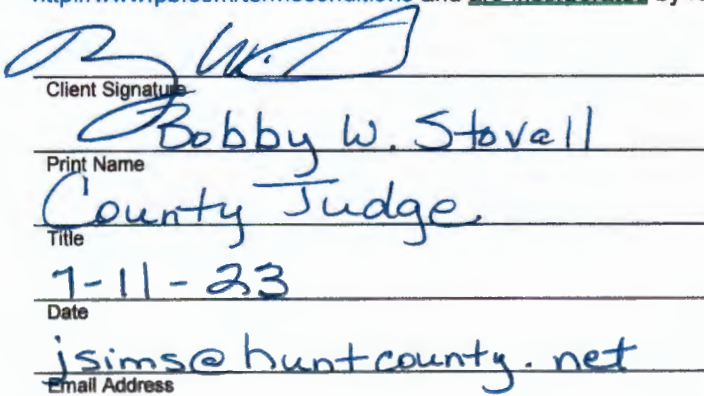 and by
Client Signature
Bobby W. Stovall
Print Name
County Judge
Title
7-11-23
Date
jsims@huntcounty.net
Email Address